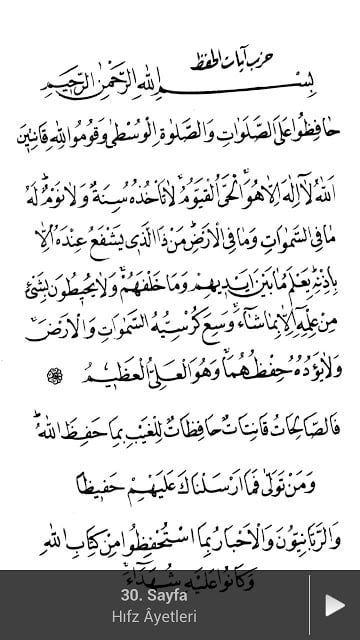 حزب آيات الحفظ
بِسْمِ اللهِ الرَّحْمٰنِ الرَّحِيمِ
حَافِظُوا عَلَى الصَّلَوَاتِ وَالصَّلٰوةِ الْوُسْطٰى وَقُومُوا لِلّٰهِ قَانِتِينَ
اَللهُ لَا اِلٰهَ اِلَّا هُوَ اَلْحَىُّ الْقَيُّومُ لَا تَاْخُذُهُ سِنَةٌ وَلَا نَوْمٌ لَهُ
مَا فِى السَّمٰوَاتِ وَمَا فِى الْاَرْضِ مَنْ ذَا الَّذِى يَشْفَعُ عِنْدَهُ اِلَّا
بِاِذْنِهِ يَعْلَمُ مَا بَيْنَ اَيْدِيهِمْ وَمَا خَلْفَهُمْ وَلَا يُحِيطُونَ بِشَىْءٍ
مِنْ عِلْمِهِ اِلَّا بِمَا شَاءَ وَسِعَ كُرْسِيُّهُ السَّمٰوَاتِ وَالْاَرْضَ
وَلَا يَؤُدُهُ حِفْظُهُمَا وَهُوَ الْعَلِىُّ الْعَظِيمُ
فَالصَّالِحَاتُ قَانِتَاتٌ حَافِظَاتٌ لِلْغَيْبِ بِمَا حَفِظَ اللهُ
وَمَنْ تَوَلّٰى فَمَا اَرْسَلْنَاكَ عَلَيْهِمْ حَفِيظًا
وَالرَّبَّانِيُّونَ وَالْاَحْبَارُ بِمَا اسْتُحْفِظُوا مِنْ كِتَابِ اللهِ
وَكَانُوا عَلَيْهِ شُهَدَاءَ
30. Sayfa
Hıfz Âyetleri